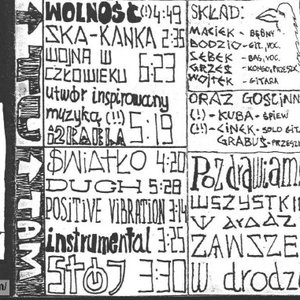 TU
TAM
WOLNOŚĆ (!) 4:49
SKA-KANKA 2:35
WOJNA W
CZŁOWIEKU 5:23
utwór inspirowany
muzyką (!!) 5:19
IZRAELA
ŚWIATŁO 4:20
DUCH 5:28
POSITIVE VIBRATION 3:14
instrumental 3:25
STÓJ 3:30
SKŁAD:
MACIEK - BĘBNY
DODZIO - GIT, VOC.
SEBEK - BAS, VOC.
GRZEŚ
WOJTEK - GITARA
ORAZ GOŚCINN
(!) - KUBA - ŚPIEW
(!!) - CINEK - SOLO GIT
GRABUŚ - PRZESZK
Pozdrawiam
WSZYSTKI
ZAWSZE
W drodz